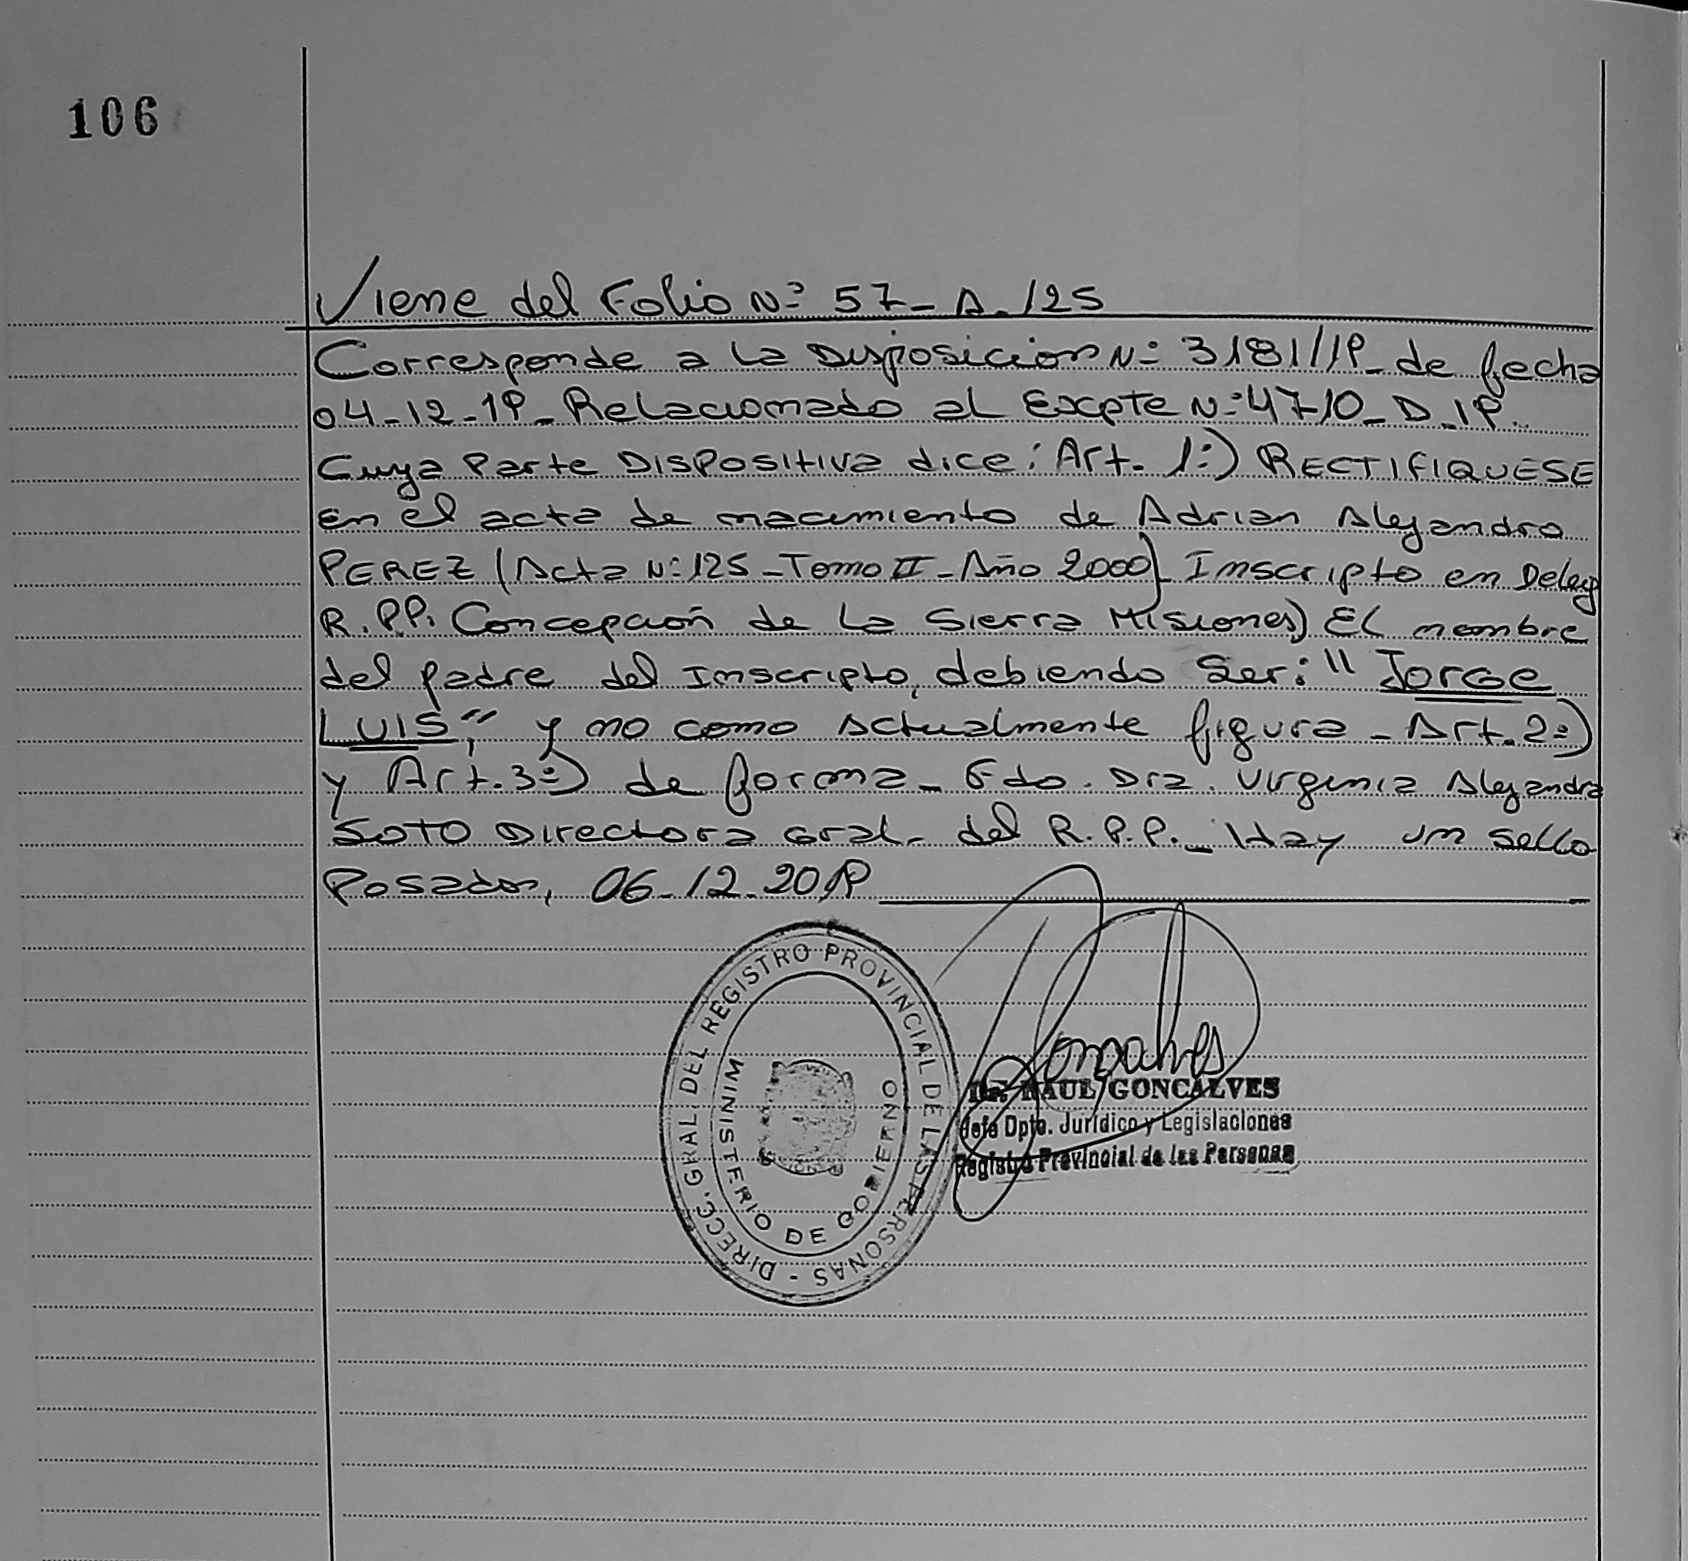 106
Viene del Folio Nº 57_ A. 125
Corresponde a la Disposicion Nº 3181/19_ de fecha
04-12-19_ Relacionado al Expte Nº 4710_ D_19_
Cuya Parte DISPOSITIVA dice: Art. 1º) RECTIFIQUESE
en el acta de nacimiento de Adrian Alejandro
PEREZ (Acta Nº 125 _ Tomo II _ Año 2000) Inscripto en Deleg
R.PP. Concepción de La Sierra Misiones) El nombre
del padre del Inscripto, debiendo ser: "JORGE
LUIS", y no como actualmente figura _ Art. 2º)
y Art. 3º) de forma_ Fdo. Dra. Virginia Alejandra
SOTO Directora Gral. del R.P.P._ Hay un sello
Posadas, 06-12-2019
DIRECC. GRAL. DEL REGISTRO PROVINCIAL DE LAS PERSONAS -
MINISTERIO DE GOBIERNO
Goncalves
Dr. RAUL GONCALVES
Jefe Dpto. Jurídico y Legislaciones
Registro Provincial de las Personas